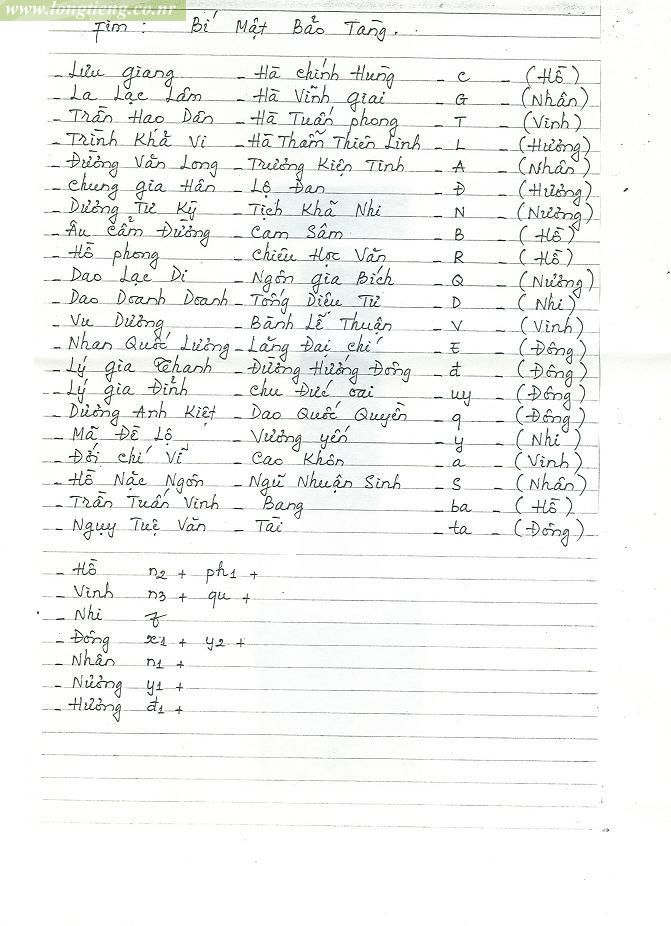 www.longtieng.co.nr
Fim : Bí Mật Bảo Tàng.
- Lưu giang - Hà chính Hùng - C - (Hồ)
- La Lạc Lâm - Hà Vĩnh giai - G - (Nhân)
- Trần Hao Dân - Hà Tuấn phong - T - (Vinh)
- Trình Khả Vi - Hà Thẩm Thiên Linh - L - (Hương)
- Đường Văn Long - Trương Kiện Tinh - A - (Nhân)
- Chung gia Hân - Lộ Đan - Đ - (Hương)
- Dương Tư Kỳ - Tịch Khả Nhi - N - (Nương)
- Âu Cẩm Đường - Cam Sâm - B - (Hồ)
- Hồ phong - Chiêu Học Văn - R - (Hồ)
- Dao Lạc Di - Ngôn gia Bích - Q - (Nương)
- Dao Doanh Doanh - Tống Diêu Tư - D - (Nhi)
- Vu Dương - Bành Lễ Thuận - V - (Vinh)
- Nhan Quốc Lương - Lăng Đại chí - E - (Đông)
- Lý gia Thanh - Đường Hướng Đông - đ - (Đông)
- Lý gia Đỉnh - chu Đức tai - uy - (Đông)
- Dương Anh Kiệt - Dao Quốc Quyền - q - (Đông)
- Mã Đề Lộ - Vương yến - y - (Nhi)
- Đới chí Vĩ - Cao Khôn - a - (Vinh)
- Hồ Nặc Ngôn - Ngũ Nhuận Sinh - S - (Nhân)
- Trần Tuấn Vinh - Bang - ba - (Hồ)
- Ngụy Tuệ Văn - Tài - ta - (Đông)
- Hồ n2 + ph1 +
- Vinh n3 + qu +
- Nhi
- Đông x1 + y2 +
- Nhân n1 +
- Nương y1 +
- Hương đ1 +